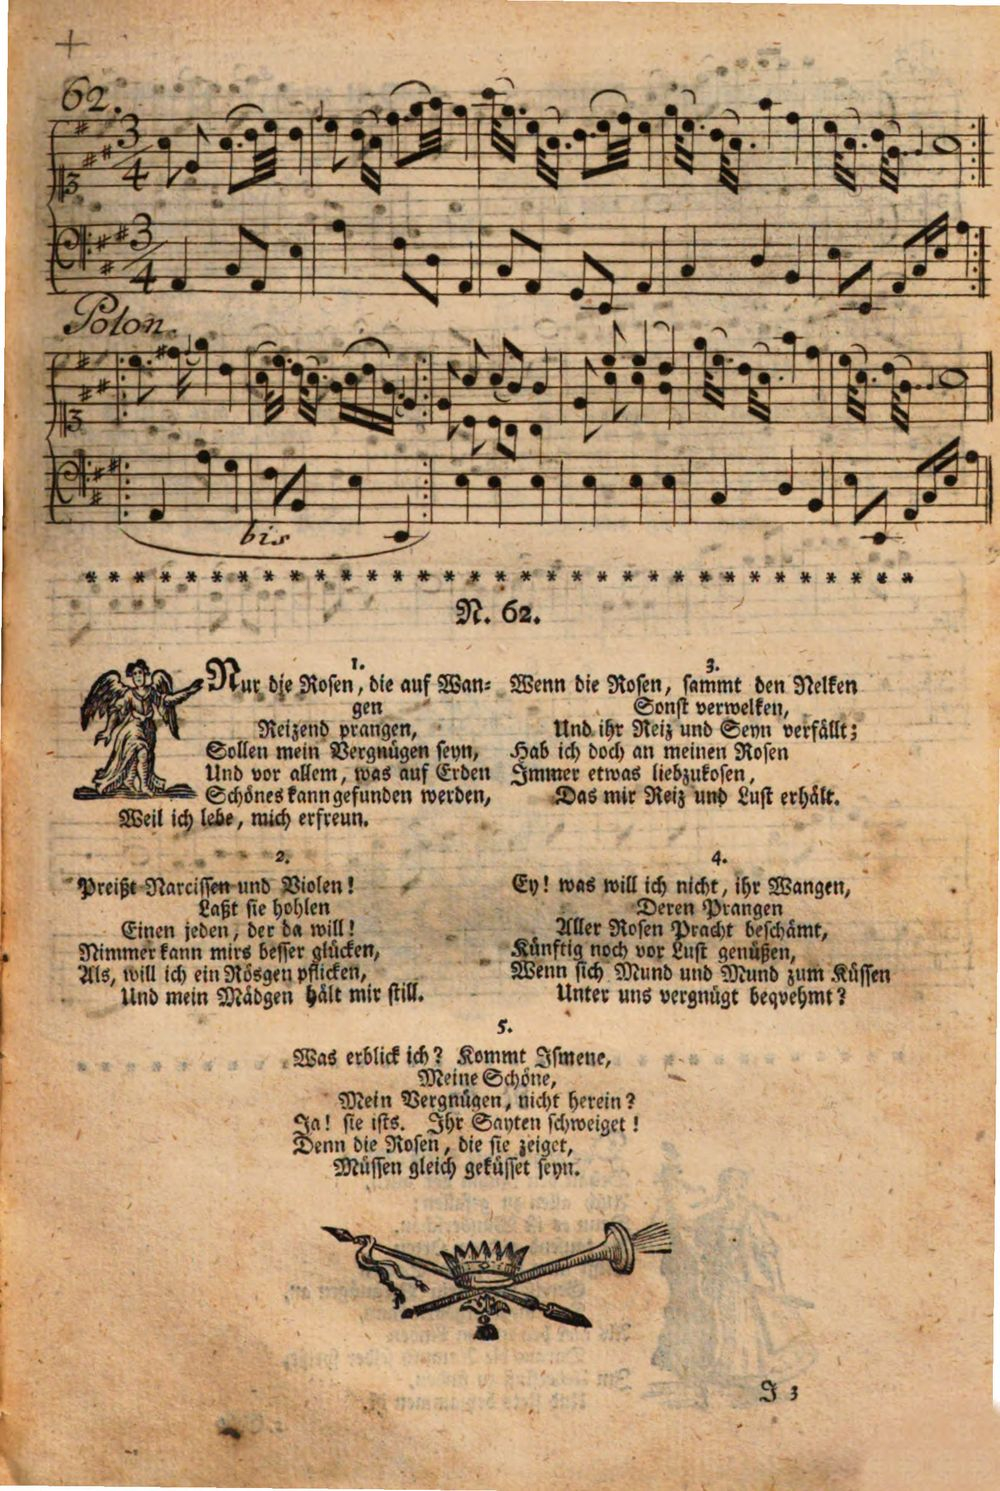 62.
3
4
3
4
Polon.
bis
N. 62.
1.
Nur die Rosen, die auf Wan-
gen
Reizend prangen,
Sollen mein Vergnügen seyn,
Und vor allem, was auf Erden
Schönes kann gefunden werden,
Weil ich lebe, mich erfreun.
2.
Preißt Narcissen und Violen!
Laßt sie hohlen
Einen jeden, der da will!
Nimmer kann mirs besser glücken,
Als, will ich ein Rösgen pflicken,
Und mein Mädgen hält mir still.
3.
Wenn die Rosen, sammt den Nelken
Sonst verwelken,
Und ihr Reiz und Seyn verfällt;
Hab ich doch an meinen Rosen
Immer etwas liebzukosen,
Das mir Reiz und Lust erhält.
4.
Ey! was will ich nicht, ihr Wangen,
Deren Prangen
Aller Rosen Pracht beschämt,
Künftig noch vor Lust genüßen,
Wenn sich Mund und Mund zum Küssen
Unter uns vergnügt beqvehmt?
5.
Was erblick ich? Kommt Ismene,
Meine Schöne,
Mein Vergnügen, nicht herein?
Ja! sie ists. Ihr Sayten schweiget!
Denn die Rosen, die sie zeiget,
Müssen gleich geküsset seyn.
J 3